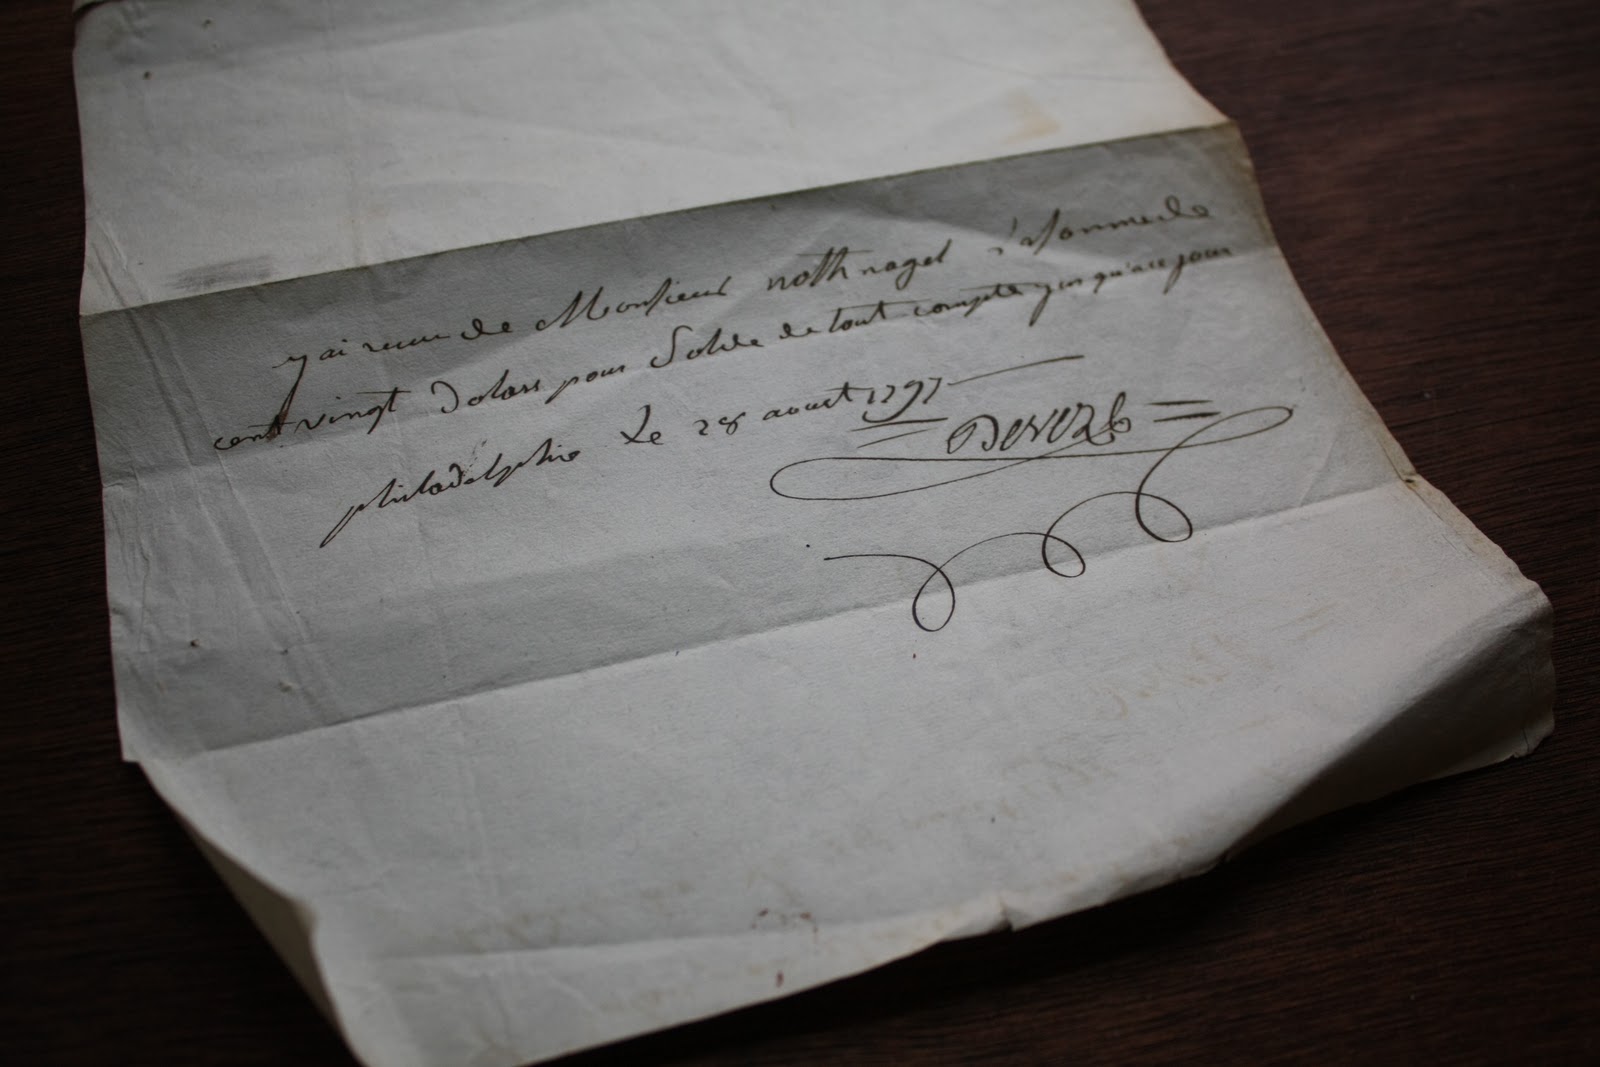 j ai recu de Monsieur nothnagel la somme de
cent vingt dolars pour Solde de tout compte jus qu'a ce jour
philadelphie Le 28 aoust 1797